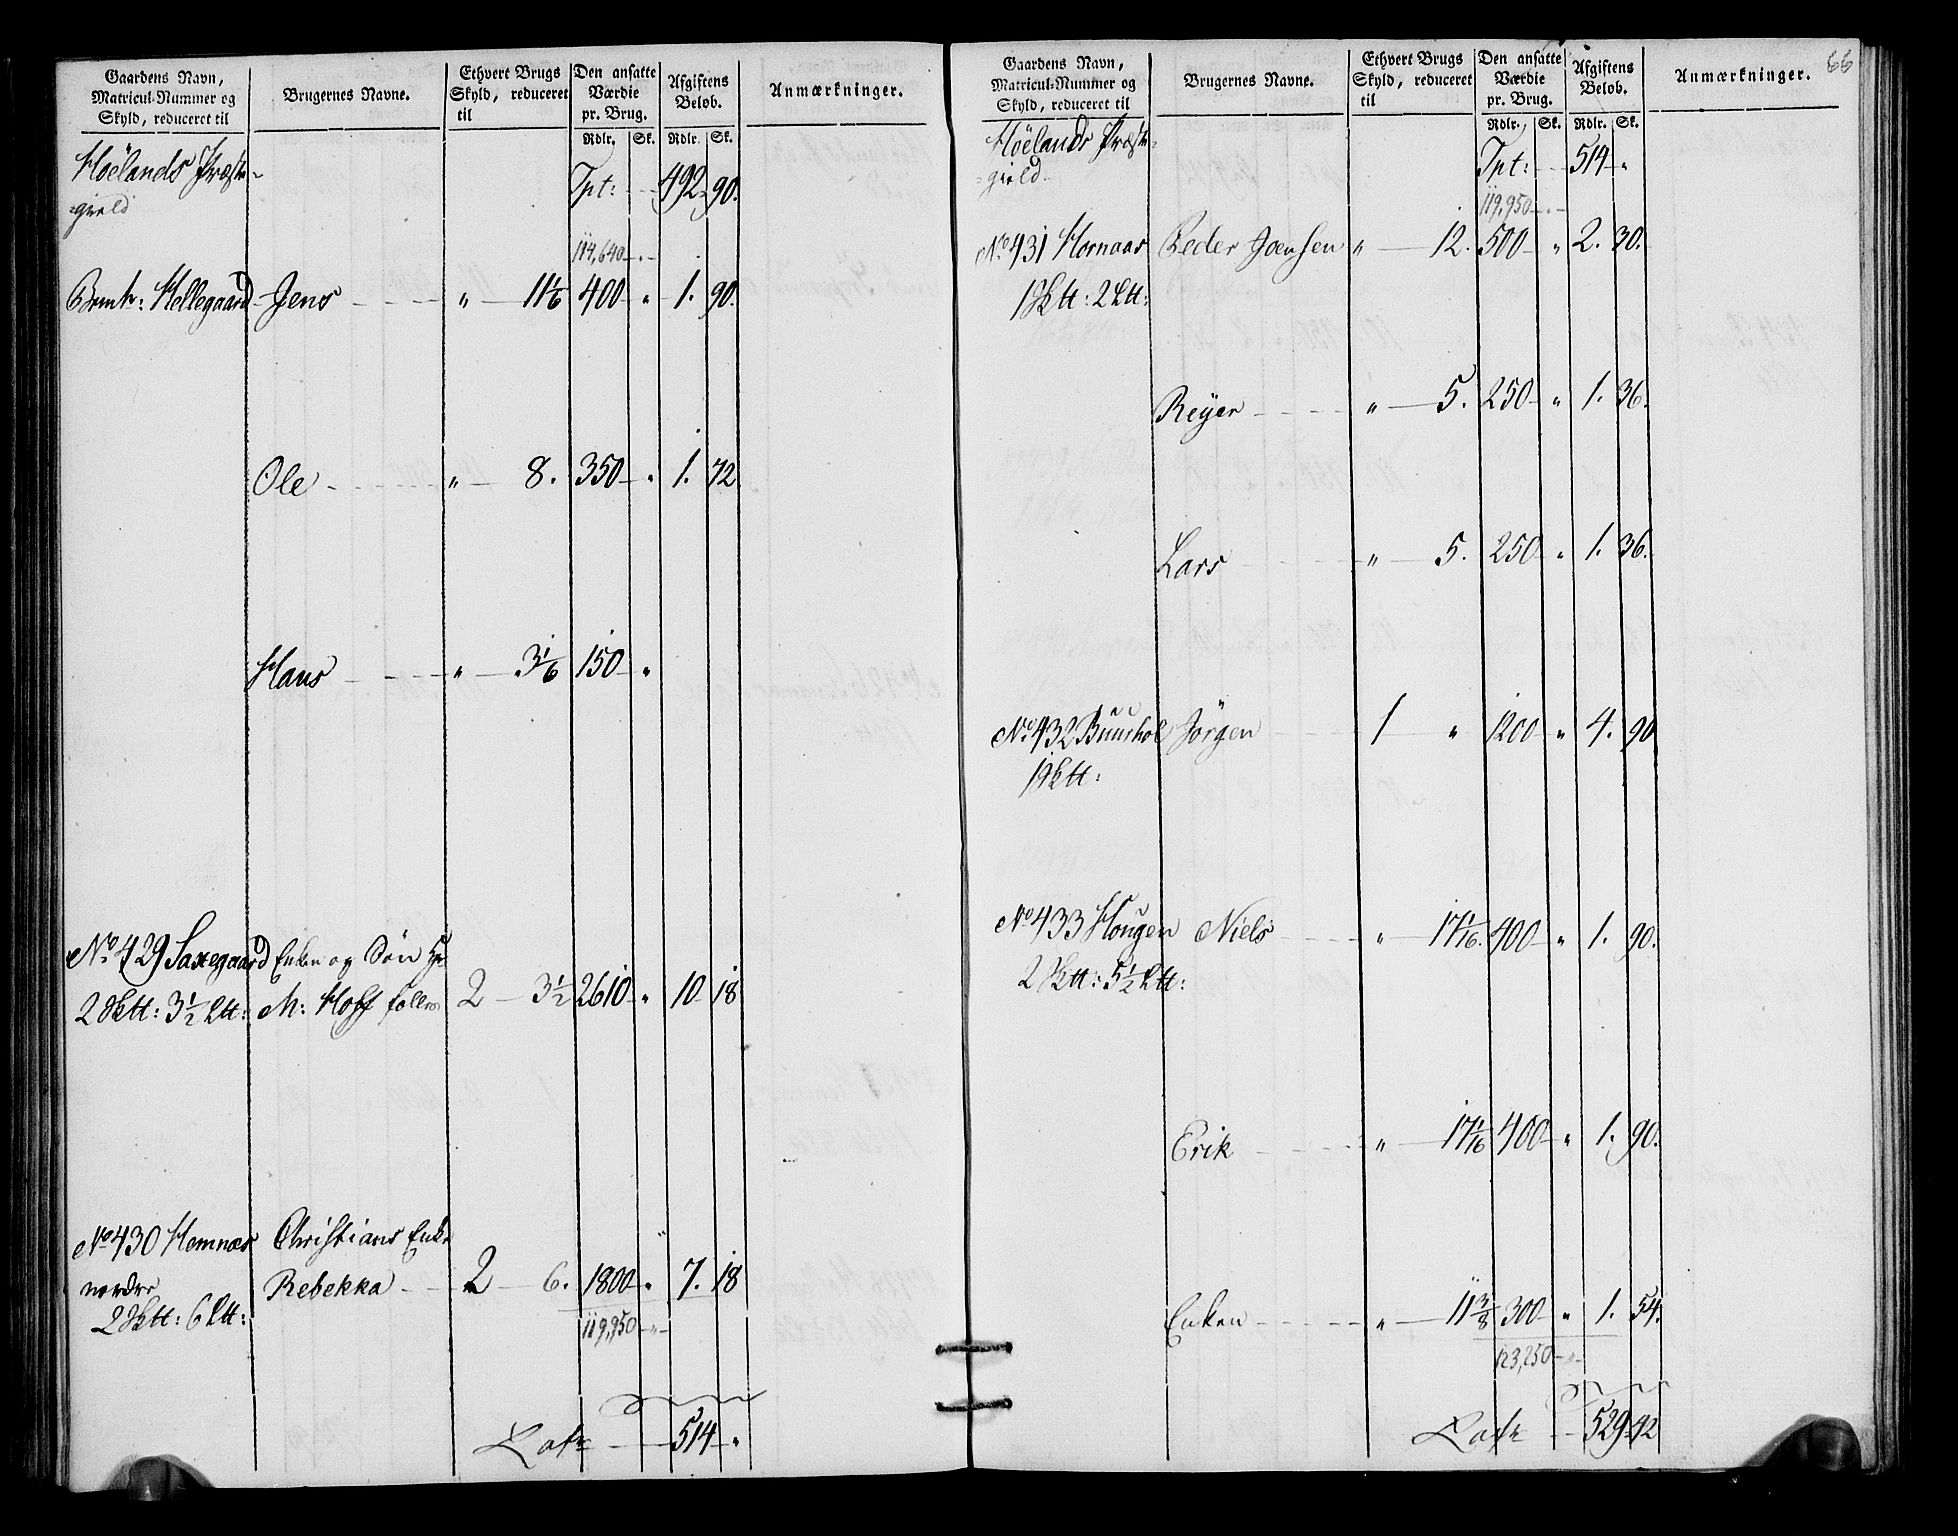 Gaardens Navn, Matricul-Nummer og Skyld, reduceret til | Brugernes Navne. | Ethvert Brugs Skyld, reduceret til | Den ansatte Værdie pr. Brug. | Afgiftens Beløb. | Anmærkninger.
Rdlr. | Sk. | Rdlr. | Sk.
Høelands Præste- Tpt: 492 90.
=gield
114,640
Hellegaard Jens " 11 1/6 400 " 1. 90.
Ole " 8. 350 " 1. 72
Hans " 3 1/6 150 "
No 429 Saxegaard Enken og Søn
2 Sktt: 3 1/2 Ltt: M: Hoff 2 3 1/2 2610 " 10 18
No 430 Hemnæs Christians Enke
nordre Rebekka 2 6. 1800 " 7. 18
2 Sktt: 6 Ltt:
119,950
Latr 514 "
66
Gaardens Navn, Matricul-Nummer og Skyld, reduceret til | Brugernes Navne. | Ethvert Brugs Skyld, reduceret til | Den ansatte Værdie pr. Brug. | Afgiftens Beløb. | Anmærkninger.
Rdlr. | Sk. | Rdlr. | Sk.
Høelands Præste- Tpt: 514 "
=gield
119,950
No 431 Hornaas Peder Joensen " 12. 500 " 2. 30.
1 Sktt: 2 Ltt:
Reyer " 5. 250 " 1. 36.
Lars " 5. 250 " 1. 36.
No 432 Buurhol Jørgen 1 " 1200 " 4. 90
1 Sktt:
No 433 Hougen Niels " 17 1/16. 400 " 1. 90.
2 Sktt: 5 1/2 Ltt:
Erik " 17 1/16 400 " 1. 90.
Enken " 11 3/8 300 " 1. 54.
123,250
Latr 529 42